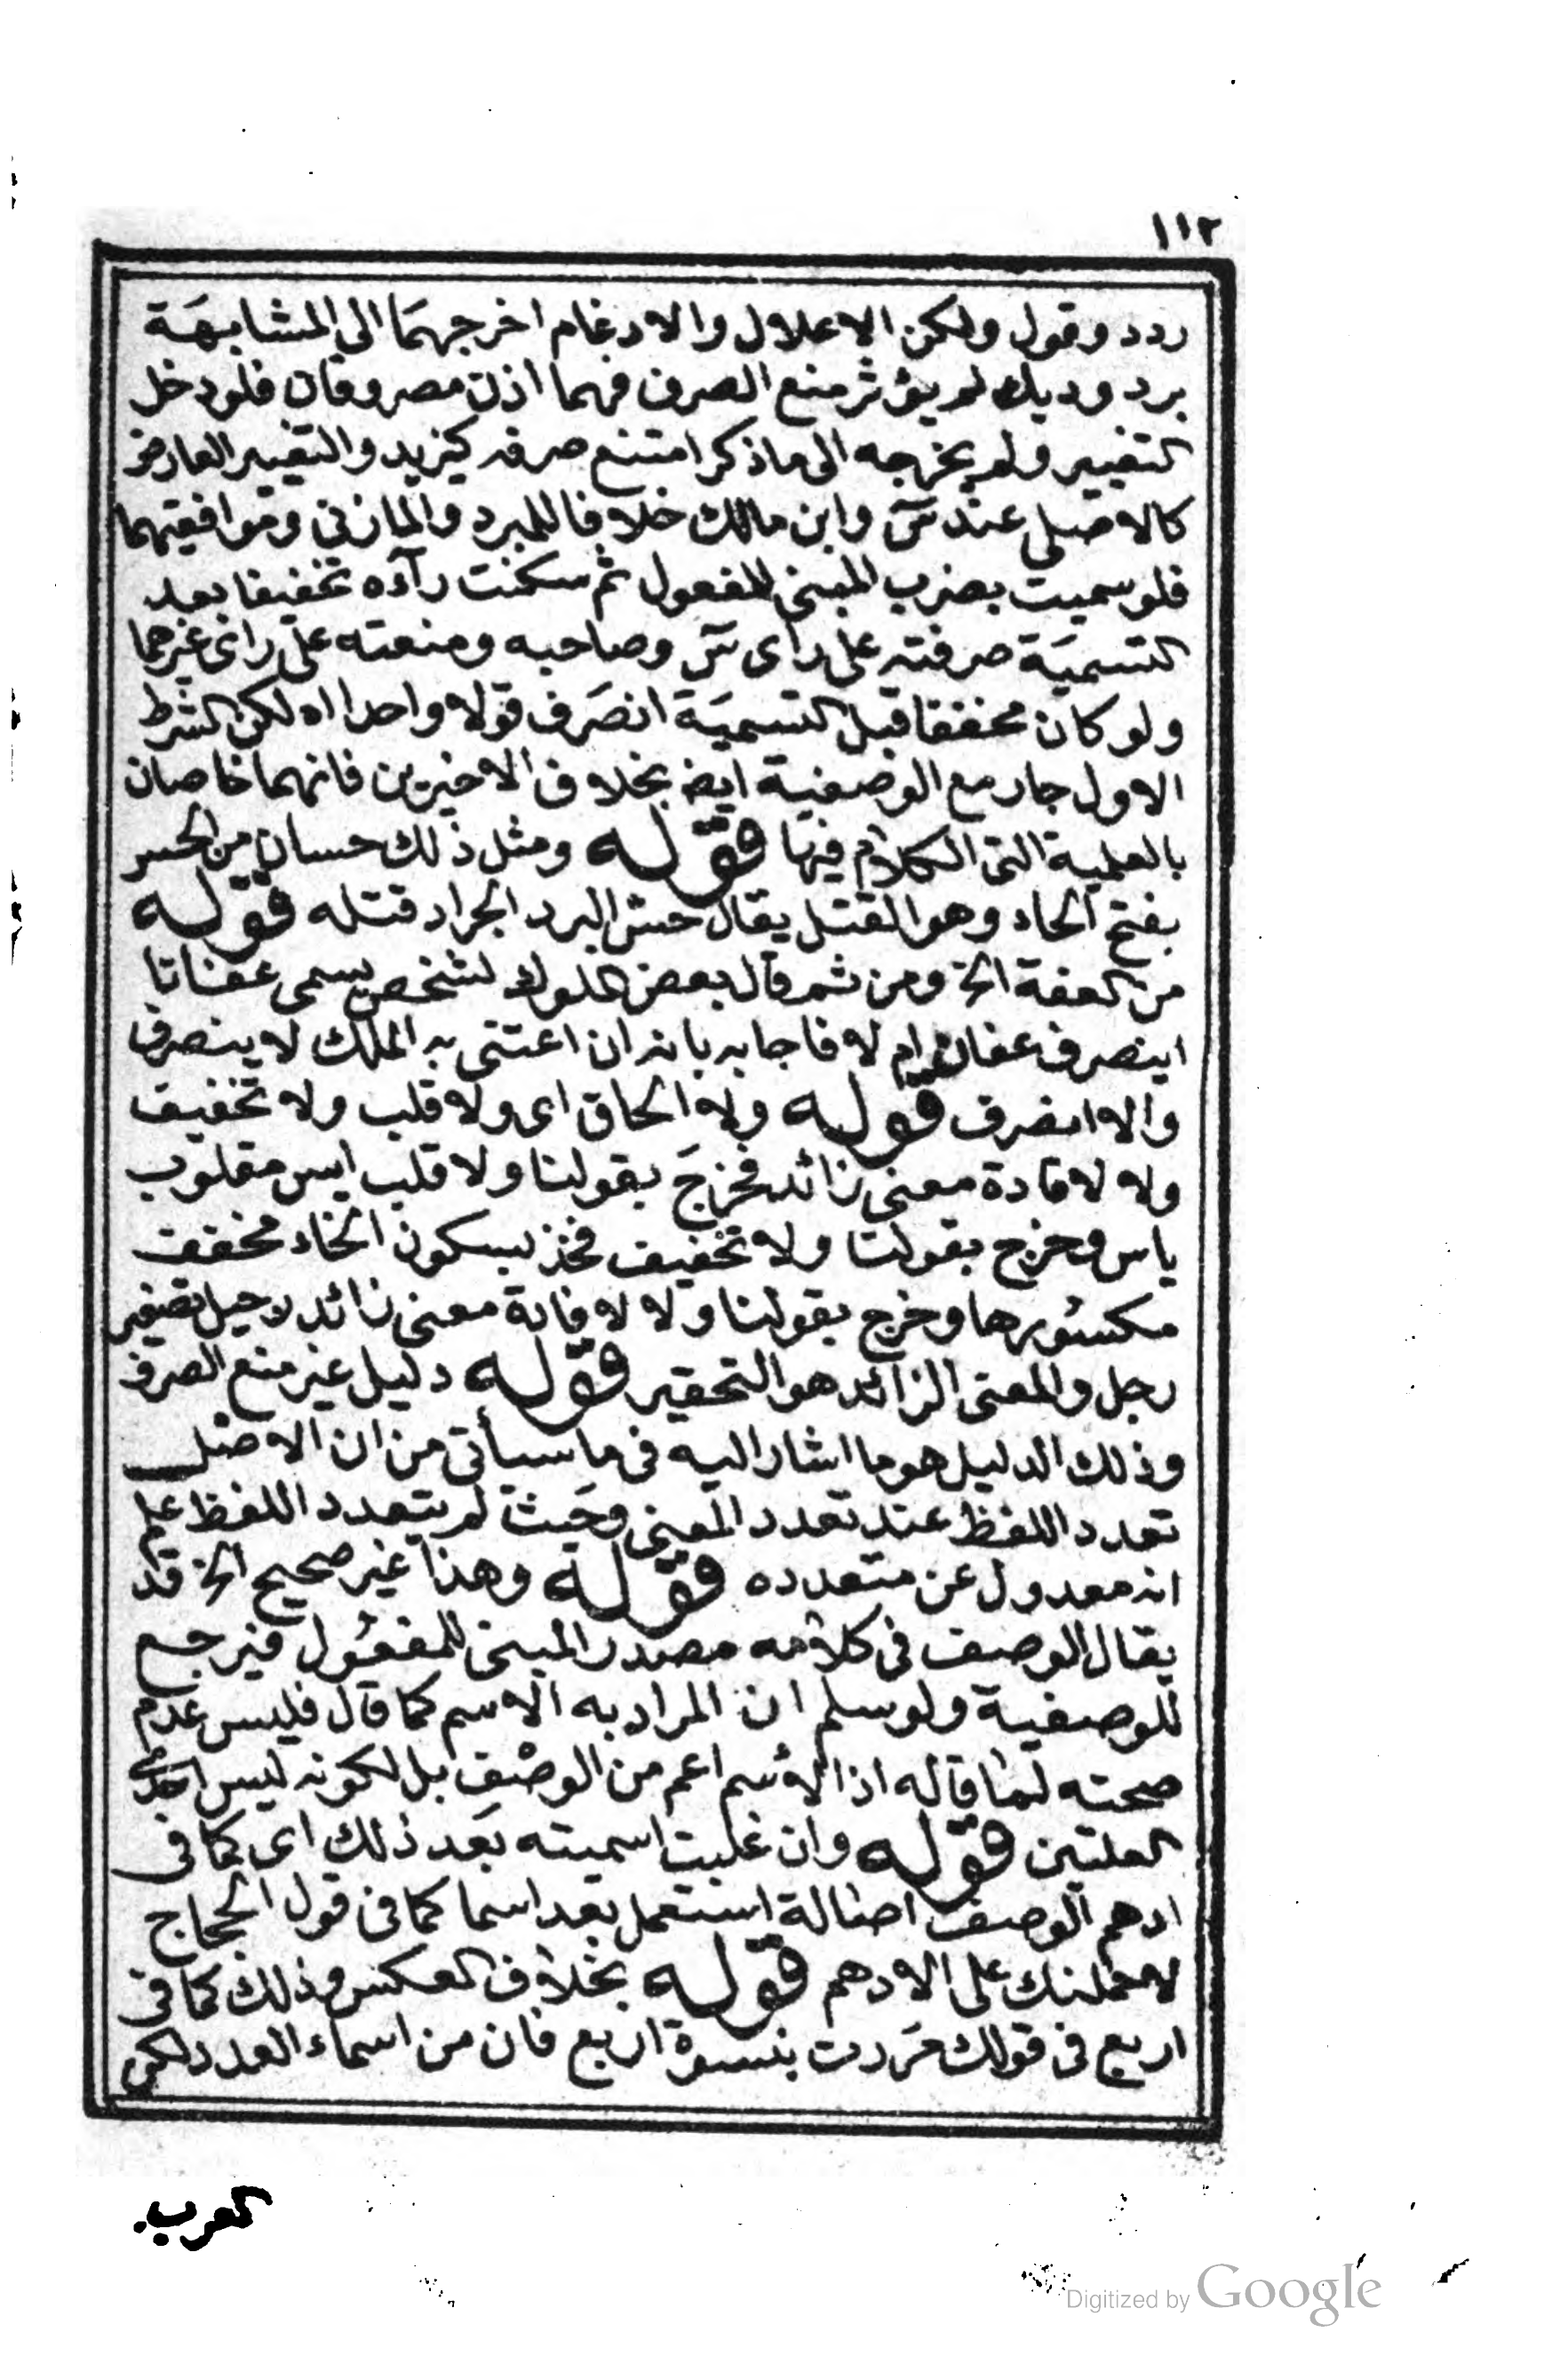 ١١٢
ردد وقول ولكن الاعلال والادغام اخرجهما الى المشابهة
برد وديك لم يؤثر منع الصرف فهما اذن مصروفان فلو دخل
التغيير ولم يخرجه الى ماذكر امتنع صرفه كيزيد والتغيير العارض
كالاصلى عند س وابن مالك خلافا للمبرد والمازنى وموافقيهما
فلو سميت بضرب المبنى للمفعول ثم سكنت رآءه تخفيفا بعد
التسمية صرفته على راى س وصاحبه ومنعته على راى غيرهما
ولو كان مخففا قبل التسمية انصرف قولا واحدا اه لكن الشرط
الاول جار مع الوصفية ايض بخلاف الاخيرين فانهما خاصان
بالعلمية التى الكلام فيها قوله ومثل ذلك حسان من الحس
بفتح الحاء وهو القتل يقال حس البرد الجراد قتله قوله
من العفة الخ ومن ثم قال بعض الملوك لشخص يسمى عفانا
اينصرف عفان ام لا فاجابه بانه ان اعتنى به الملك لا ينصرف
والا انصرف قوله ولا الحاق اى ولا قلب ولا تخفيف
ولا لافادة معنى زائد فخرج بقولنا ولا قلب ايس مقلوب
ياس وخرج بقولنا ولا تخفيف فخذ بسكون الخاء مخفف
مكسورها وخرج بقولنا ولا لافادة معنى زائد رجيل تصغير
رجل والمعنى الزائد هو التحقير قوله دليل غير منع الصرف
وذلك الدليل هو ما اشار اليه فى ما سيأتى من ان الاصل
تعدد اللفظ عند تعدد المعنى وحيث لم يتعدد اللفظ علم
انه معدول عن متعدده قوله وهذا غير صحيح الخ قد
يقال الوصف فى كلامه مصدر المبنى للمفعول فيرجع
للوصفية ولو سلم ان المراد به الاسم كما قال فليس عدم
صحته لما قاله اذ الاسم اعم من الوصف بل لكونه ليس احدى
العلتين قوله وان غلبت اسميته بعد ذلك اى كما فى
ادهم الوصف اصالة استعمل بعد اسما كما فى قول الحجاج
لاحملنك على الادهم قوله بخلاف العكس وذلك كما فى
اربع فى قولك مررت بنسوة اربع فان من اسماء العدد لكن
العرب
Digitized by Google